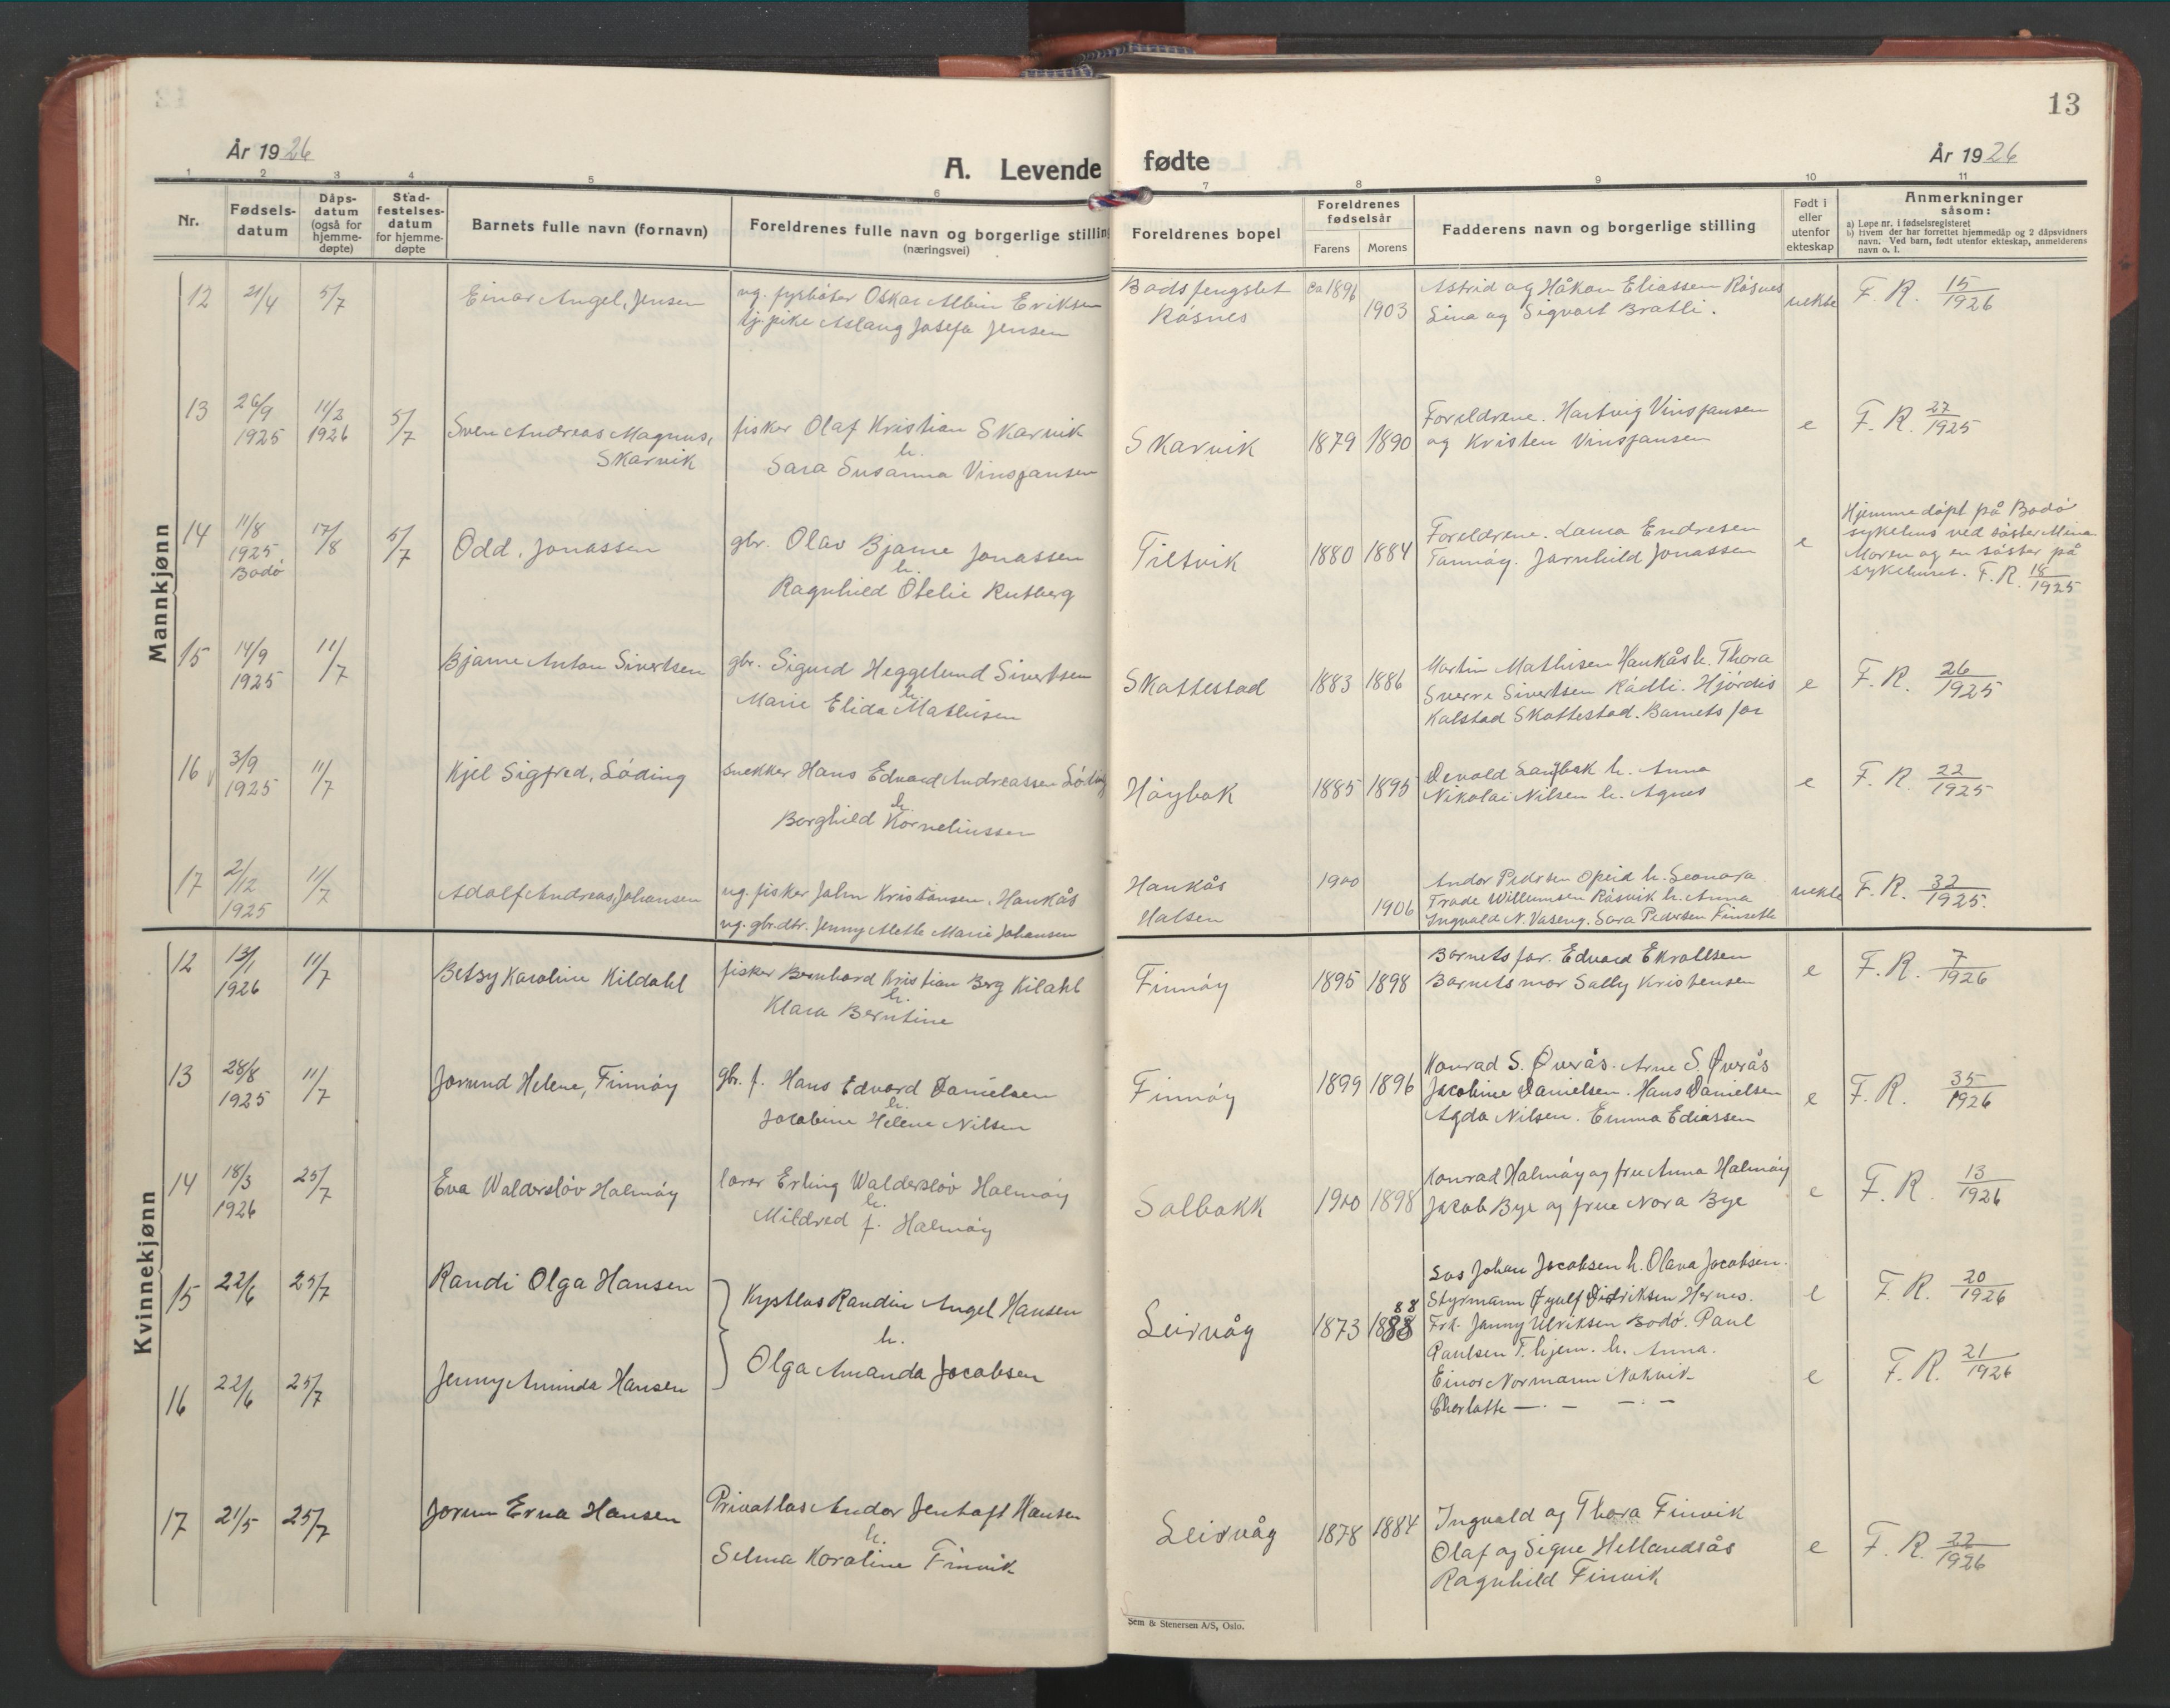 13
År 1926
A. Levende fødte
År 1926
1 2 3 4 5 6 7 8 9 10 11
Nr.
Fødsels-
datum
Dåps-
datum
(også for
hjemme-
døpte)
Stad-
festelses-
datum
for hjemme-
døpte
Barnets fulle navn (fornavn)
Foreldrenes fulle navn og borgerlige stilling
(næringsvei)
Foreldrenes bopel
Foreldrenes
fødselsår
Farens Morens
Fadderens navn og borgerlige stilling
Født i
eller
utenfor
ekteskap
Anmerkninger
såsom:
a) Løpe nr. i fødselsregisteret
b) Hvem der har forrettet hjemmedåp og 2 dåpsvidners
navn. Ved barn, født utenfor ekteskap, anmelderens
navn o. l.
Mannkjønn
12 21/4 5/7 Einar Angel, Jensen
ug. fyrbøter Oskar Albin Eriksen
tj. pike Aslaug Josefa Jensen
Bodsfengslet
Råsnes
ca 1896
1903
Astrid og Håkon Eliassen Råsnes
Lina og Sigvart Bratli.
uekte
F. R. 15/1926
13 26/9 1925 11/2 1926 5/7
Sven Andreas Magnus,
Skarvik
fisker Olaf Kristian Skarvik
h.
Sara Susanna Vinsjansen
Skarvik 1879 1890
Foreldrene. Hartvig Vinsjansen
og Kristen Vinsjansen
e
F. R. 27/1925
14 11/8 1925 Bodö 17/8 5/7
Odd, Jonassen
gbr. Olav Bjarne Jonassen
h.
Ragnhild Otelie Rutberg
Tiltvik 1880 1884
Foreldrene. Laura Endresen
Tannöy. Jarnhild Jonassen
e
Hjemmedöpt på Bodö
sykehus ved söster Mina
Moren og en söster på
sykehuset. F. R. 18/1925
15 14/9 1925 11/7
Bjarne Anton Sivertsen
gbr. Sigurd Heggelund Sivertsen
h.
Marie Elida Mathisen
Skottestad 1883 1886
Martin Mathisen Haukås h. Thora
Sverre Sivertsen Rådli. Hjördis
Kalstad Skottestad. Barnets far
e
F. R. 26/1925
16 3/9 1925 11/7
Kjel Sigfred, Löding
snekker Hans Edvard Andreassen Löding
h.
Borghild Korneliussen
Höybak 1885 1895
Devold Saursbak h. Anna
Nikolai Nilsen h. Agnes
e
F. R. 22/1925
17 2/12 1925 11/7
Adolf Andreas, Johansen
ug. fisker John Kristansen, Haukås
ug. gbr.dtr. Jenny Mette Marie Johansen
Haukås
Halsen
1900
1906
Andor Pedersen Opeid h. Leonora
Frade Willumsen Råsvik h. Anna
Ingvald N. Vaseng. Sara Pedersen Finseth
uekte
F. R. 32/1925.
Kvinnekjønn
12 13/1 1926 11/7
Betsy Karoline Kildahl
fisker Bernhard Kristian Berg Kilahl
h.
Klara Berntine
Finnöy 1895 1898
Barnets far. Edvard Ekrollsen
Barnets mor Sally Kristensen
e
F. R. 7/1926
13 28/8 1925 11/7
Jorund Helene, Finnöy
gbr. f. Hans Edvard Danielsen
h.
Jakobine Helene Nilsen
Finnöy 1899 1896
Konrad S. Överås. Arne S. Överås
Jacobine Danielsen. Hans Danielsen
Agda Nilsen. Emma Ediassen
e
F. R. 35/1926
14 18/3 1926 25/7
Eva Waldersløv Halmöy
lærer Erling Waldersløv Halmöy
h.
Mildred f. Halmöy
Solbakk 1900 1898
Konrad Halmöy og frue Anna Halmöy
Jakob Bye og frue Nora Bye
e
F. R. 13/1926
15 22/6 25/7
Randi Olga Hansen
Kystlos Randin Angel Hansen
h.
Olga Amanda Jacobsen
Leirvåg 1873 1888 88
Los Johan Jacobsen h. Olava Jacobsen.
Styrmann Öyulf Didriksen Hernes.
Frk. Jenny Ulriksen Bodö. Paul
Paulsen T. hjem. h. Anna.
Einar Normann Nakvik
Charlotte — — — —
e
F. R. 20/1926
16 22/6 25/7
Jenny Aminda Hansen
e
F. R. 21/1926
17 21/5 25/7
Jorun Erna Hansen
Privatlos Andor Jentoft Hansen
h.
Selma Karoline Finvik
Leirvåg 1878 1884
Ingvald og Thora Finvik
Olaf og Signe Hellandsås
Ragnhild Finvik
e
F. R. 22/1926
Sem & Stenersen A/S, Oslo.